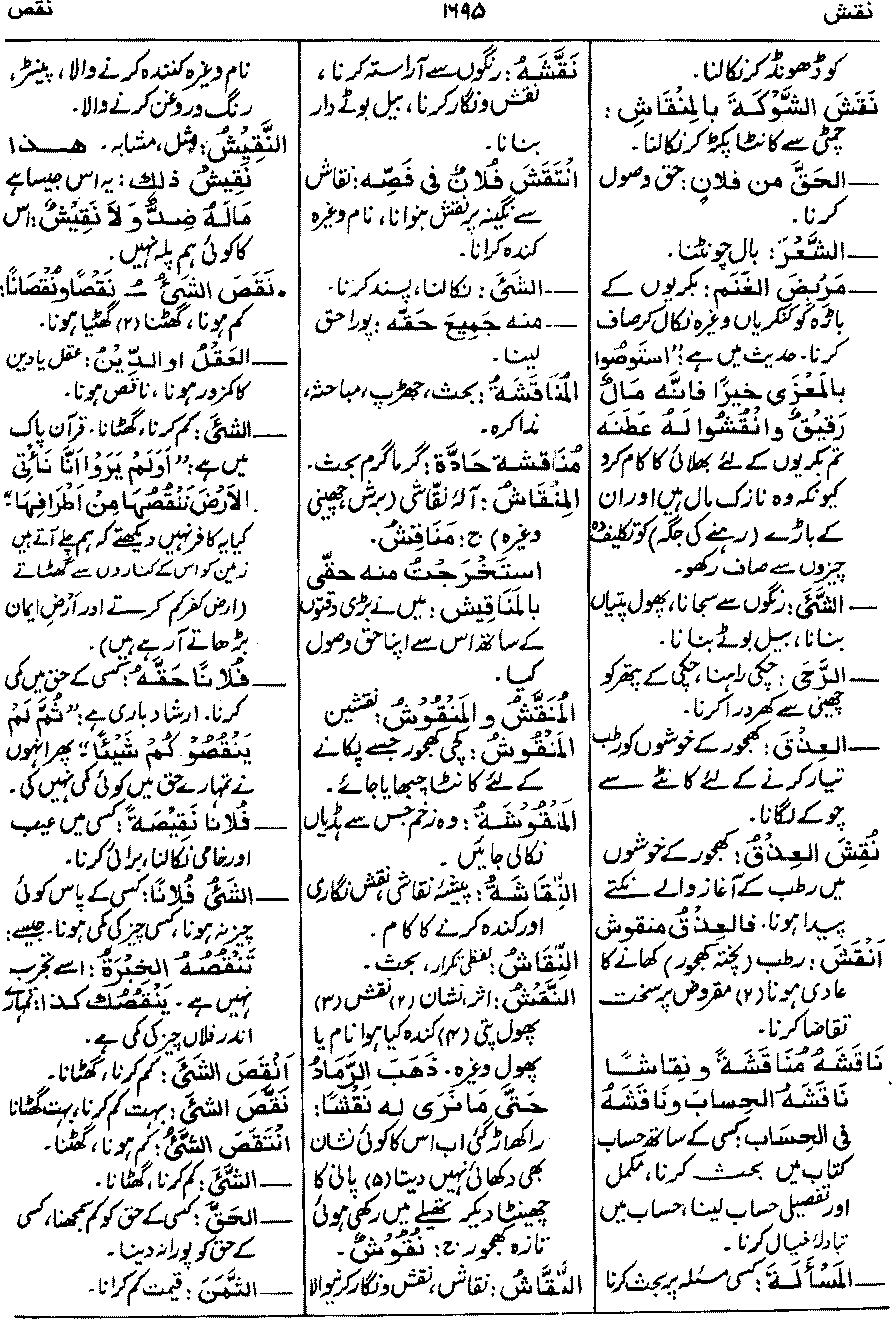 نقش
۱۶۹۵
نقص
کو ڈھونڈ کر نکالنا۔
نَقَشَ الشَّوْكَةَ بالمِنْقَاشِ :
چمٹی سے کانٹا پکڑ کر نکالنا۔
— الحَقَّ من فلانٍ: حق وصول
کرنا۔
— الشَّعْرَ: بال چونٹنا۔
— مَرْبِضَ الغَنَمِ: بکریوں کے
باڑہ کو کنکریاں وغیرہ نکال کر صاف
کرنا۔ حدیث میں ہے: "استوصُوا
بالمَعْزَى خيرًا فانّه مَالٌ
رَقِيقٌ وانْقُشُوا لَهُ عَطَنَه
تم بکریوں کے لئے بھلائی کا کام کرو
کیونکہ وہ نازک مال ہیں اور ان
کے باڑے (رہنے کی جگہ) کو تکلیف دہ
چیزوں سے صاف رکھو۔
— الشَّیَٔ: رنگوں سے سجانا، پھول پتیاں
بنانا، بیل بوٹے بنانا۔
— الرَّحَى: چکی راہنا، چکی کے پتھر کو
چھینی سے کھردرا کرنا۔
— العِذْقَ: کھجور کے خوشوں کو رطب
تیار کرنے کے لئے کانٹے سے
چوکے لگانا۔
نُقِشَ العِذْقُ: کھجور کے خوشوں
میں رطب کے آغاز والے نکتے
پیدا ہونا۔ فالعِذْقُ منقوش
اَنْقَشَ: رطب (پختہ کھجور) کھانے کا
عادی ہونا (۲) مقروض پر سخت
تقاضا کرنا۔
نَاقَشَهُ مُنَاقَشَةً و نِقاشًا
نَاقَشَهُ الحِسابَ ونَاقَشَهُ
فی الحِسَاب: کسی کے ساتھ حساب
کتاب میں بحث کرنا، مکمل
اور تفصیل حساب لینا، حساب میں
تبادلۂ خیال کرنا۔
— المَسْأَلَةَ: کسی مسئلہ پر بحث کرنا
نَقَّشَهُ: رنگوں سے آراستہ کرنا،
نقش ونگار کرنا، بیل بوٹے دار
بنانا۔
انْتَقَشَ فُلَانٌ فی فَصِّهِ: نقاش
سے نگینہ پر نقش بنوانا، نام وغیرہ
کندہ کرانا۔
— الشیَٔ: نکالنا، پسند کرنا۔
— منه جَمِيعَ حَقِّه: پورا حق
لینا۔
المُنَاقَشَةُ: بحث، جھڑپ، مباحثہ،
مذاکرہ۔
مُنَاقَشَة حَادَّة: گرما گرم بحث۔
المِنْقَاشُ: آلۂ نقّاشی (برش، چھینی
وغیرہ) ج: مَنَاقِيشُ۔
استَخْرَجْتُ منه حقّى
بالمَنَاقِيش: میں نے بڑی دقتوں
کے ساتھ اس سے اپنا حق وصول
کیا۔
المُنَقَّشُ و المَنْقُوشُ: نقشین
المَنْقُوشُ: کچی کھجور جسے پکانے
کے لئے کانٹا چبھایا جائے۔
المَنْقُوشَةُ: وہ زخم جس سے ہڈیاں
نکالی جائیں۔
النِّقَاشَةُ: پیشۂ نقاشی، نقش نگاری
اور کندہ کرنے کا کام۔
النِّقَاشُ: لفظی تکرار، بحث۔
النَّقْشُ: اثر، نشان (۲) نقش (۳)
پھول پتی (۴) کندہ کیا ہوا نام یا
پھول وغیرہ۔ ذَهَبَ الرَّمَادُ
حَتّى مَا نَرَى له نَقْشًا:
راکھ اڑ گئی اب اس کا کوئی نشان
بھی دکھائی نہیں دیتا (۵) پانی کا
چھینٹا دیکر تھیلے میں رکھی ہوئی
تازہ کھجور ج: نُقُوشٌ۔
النَّقَّاشُ: نقاش، نقش ونگار کرنیوالا
نام وغیرہ کنندہ کرنے والا، پینٹر،
رنگ و روغن کرنے والا۔
النَّقِيشُ: مثل، مشابہ۔ هذا
نَقِيشُ ذلك: یہ اس جیسا ہے
مَالَهُ ضِدٌّ وَلَا نَقِيشٌ: اس
کا کوئی ہم پلہ نہیں۔
• نَقَصَ الشیُٔ ـُ نَقْصًا ونُقْصَانًا:
کم ہونا، گھٹنا (۲) گھٹیا ہونا۔
— العَقْلُ او الدِّيْنُ: عقل یا دین
کا کمزور ہونا، ناقص ہونا۔
— الشیَٔ: کم کرنا، گھٹانا۔ قرآن پاک
میں ہے: "اَوَلَمْ يَرَوْا اَنَّا نَأْتِی
الاَرْضَ نَنْقُصُهَا مِنْ اَطْرَافِهَا"
کیا یہ کافر نہیں دیکھتے کہ ہم چلے آتے ہیں
زمین کو اس کے کناروں سے گھٹاتے
(ارضِ کفر کم کرتے اور ارضِ ایمان
بڑھاتے آ رہے ہیں)۔
— فُلَانًا حَقَّهُ: کسی کے حق میں کمی
کرنا۔ ارشاد باری ہے: "ثُمَّ لَمْ
يَنْقُصُو كُمْ شَيْئًا": پھر انہوں
نے تمہارے حق میں کوئی کمی نہیں کی۔
— فُلَانًا نَقِيْصَةً: کسی میں عیب
اور خامی نکالنا، برائی کرنا۔
— الشیُٔ فُلَانًا: کسی کے پاس کوئی
چیز نہ ہونا، کسی چیز کی کمی ہونا۔ جیسے:
تَنْقُصُهُ الخِبْرَةُ: اسے تجربہ
نہیں ہے۔ يَنْقُصُك كذا: تمہارے
اندر فلاں چیز کی کمی ہے۔
اَنْقَصَ الشیَٔ: کم کرنا، گھٹانا۔
نَقَّصَ الشیَٔ: بہت کم کرنا، بہت گھٹانا
انْتَقَصَ الشَّیُٔ: کم ہونا، گھٹنا۔
— الشَّیَٔ: کم کرنا، گھٹانا۔
— الحَقَّ: کسی کے حق کو کم سمجھنا، کسی
کے حق کو پورا نہ دینا۔
— الثَّمَنَ: قیمت کم کرانا۔